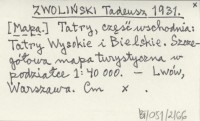 ZWOLIŃSKI Tadeusz 1931.
[Mapa.] Tatry, część wschodnia:
Tatry Wysokie i Bielskie. Szcze-
gółowa mapa turystyczna w
podziałce 1:40000. – Lwów,
Warszawa. Cm x .